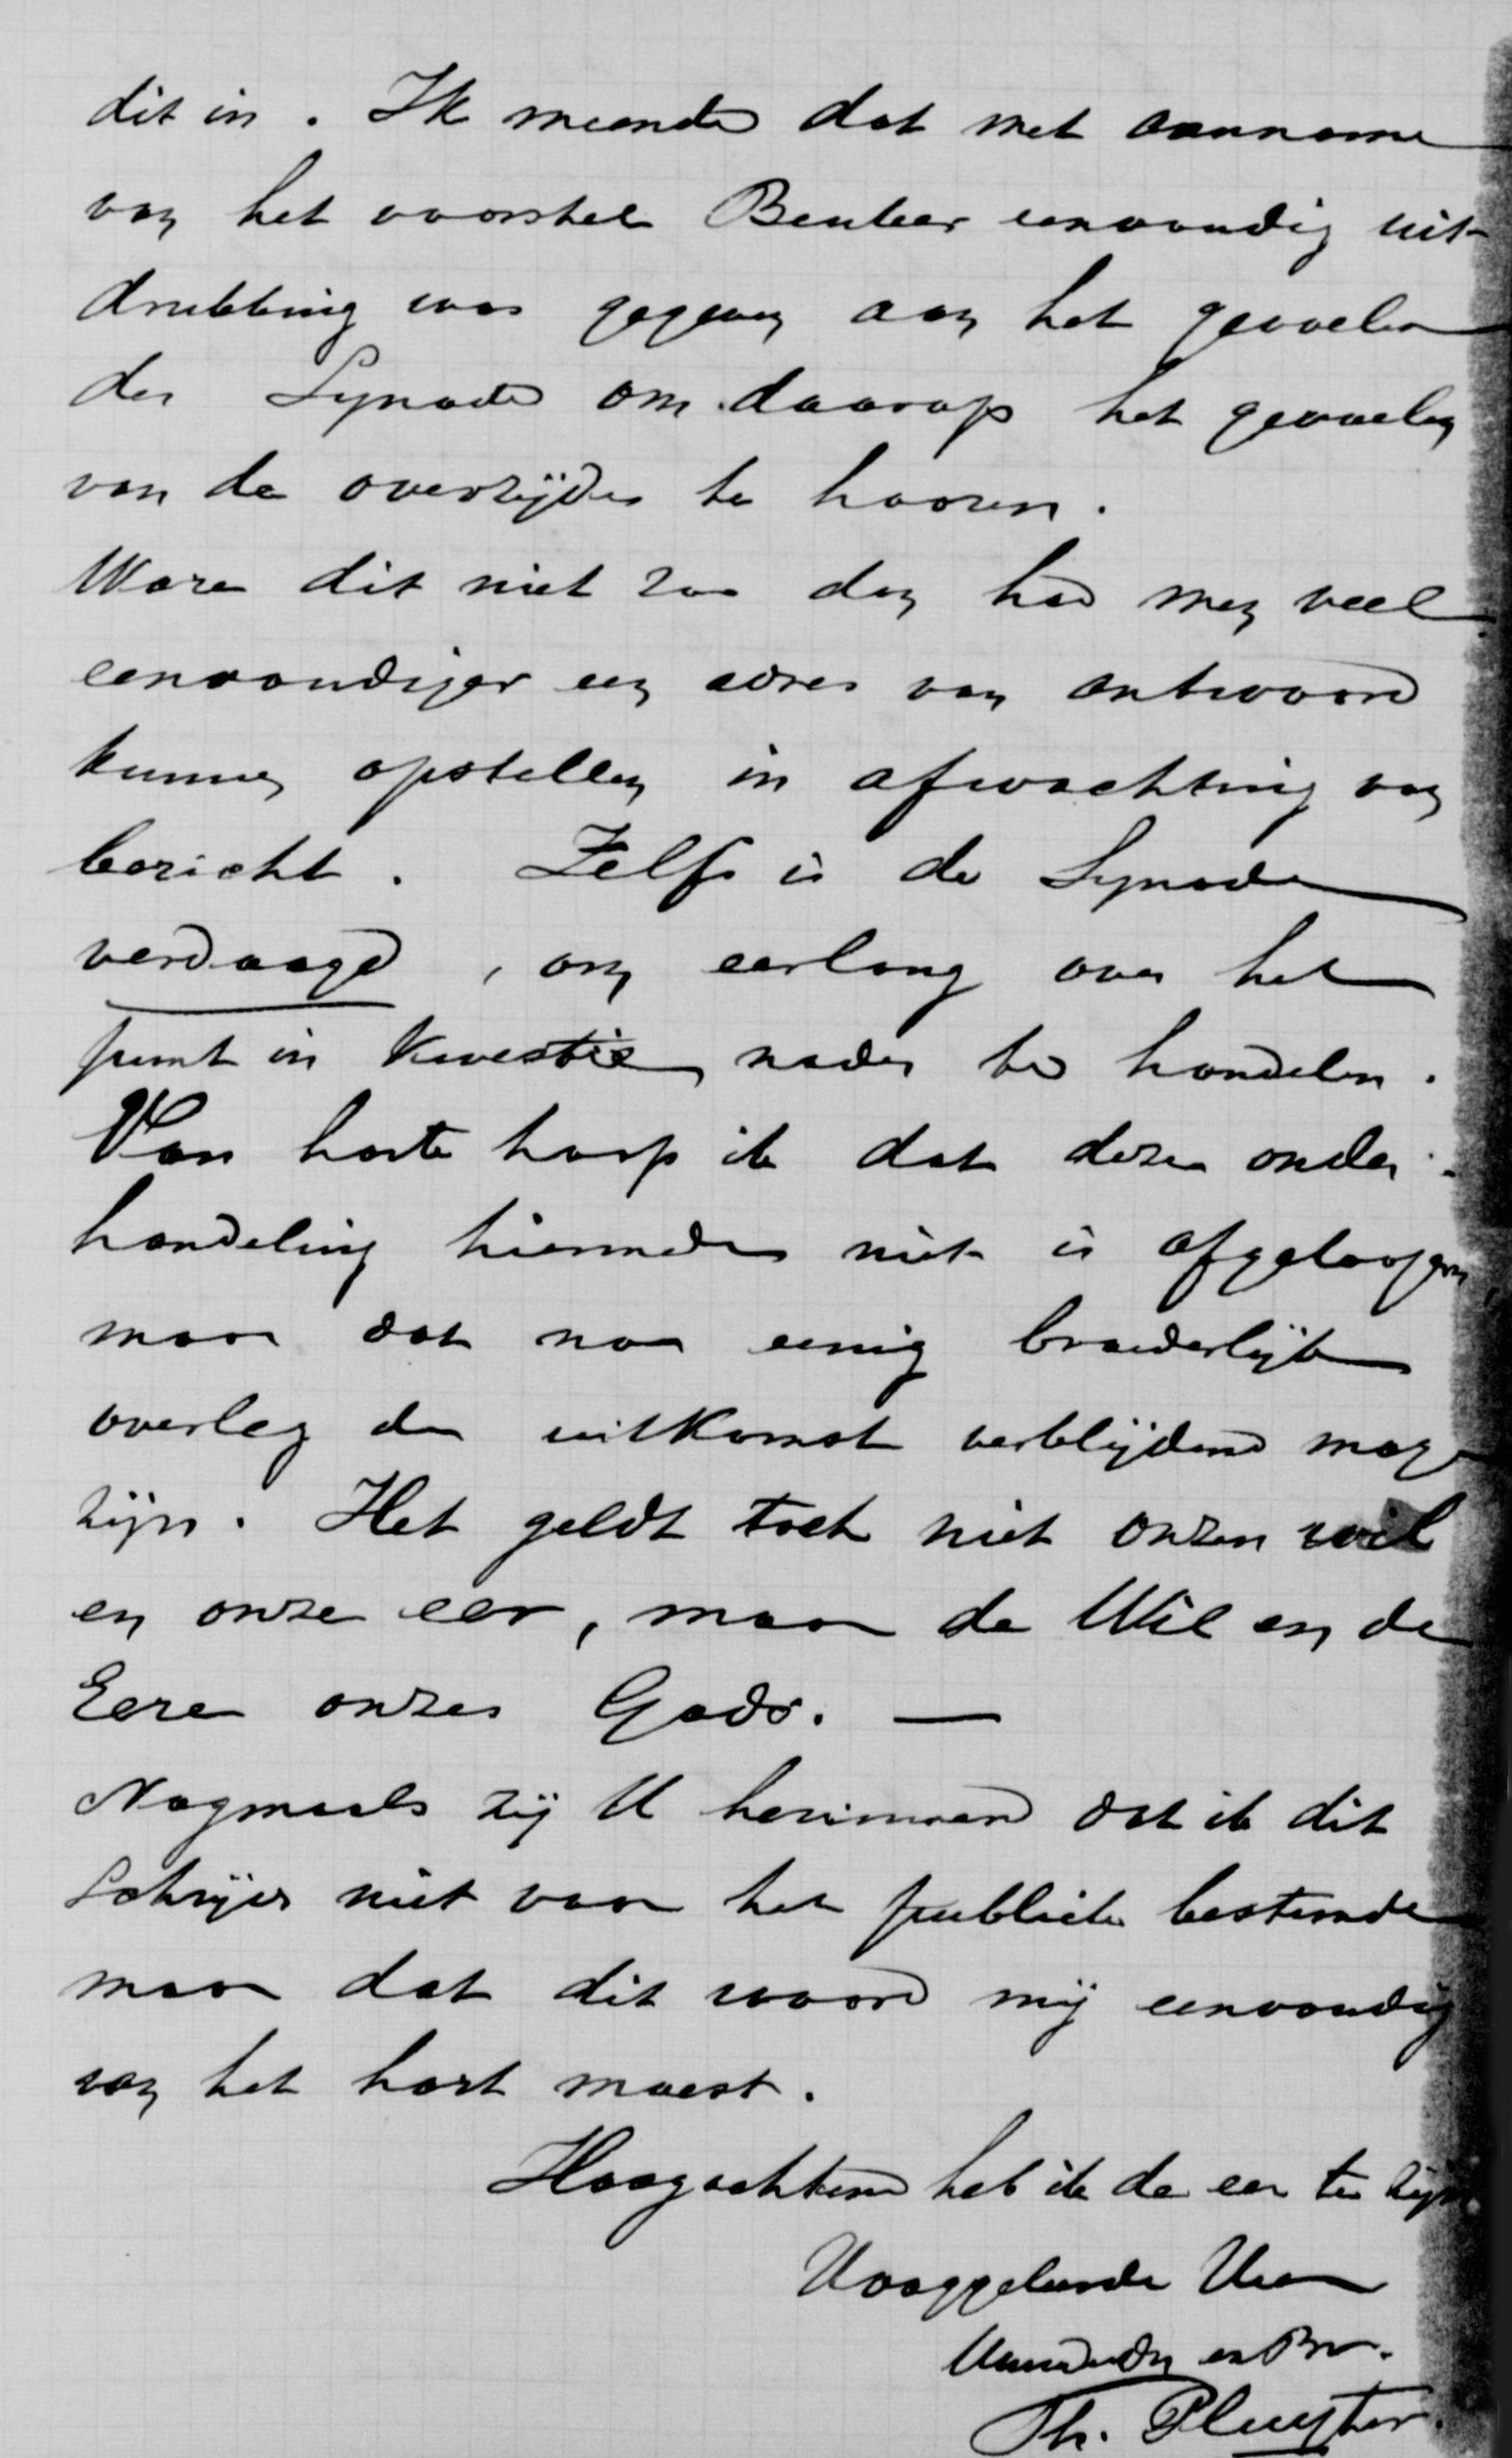 dit in. Ik meende dat met aanname
van het voorstel Beuker eenvoudig uit-
drukking was gegeven aan het gevoelen
der Synode om daarop het gevoelen
van de overzijde te hooren.
Ware dit niet zoo dan had men veel
eenvoudiger een adres van antwoord
kunnen opstellen in afwachting van
bericht. Zelfs is de Synode
verdaagd, om eerlang over het
punt in kwestie nader te handelen.
Van harte hoop ik dat deze onder-
handeling hiermede niet is afgeloopen,
maar dat na eenig broederlijk
overleg de uitkomst verblijdend moge
zijn. Het geldt toch niet onzen wil
en onze eer, maar de Wil en de
Eere onzes Gods. —
Nogmaals zij U herinnerd dat ik dit
schrijven niet voor het publiek bestemde
maar dat dit woord mij eenvoudig
van het hart moest.
Hoogachtend heb ik de eer te zijn
Hooggeleerde Heer
Uw en Br.
Th. Pluyster.